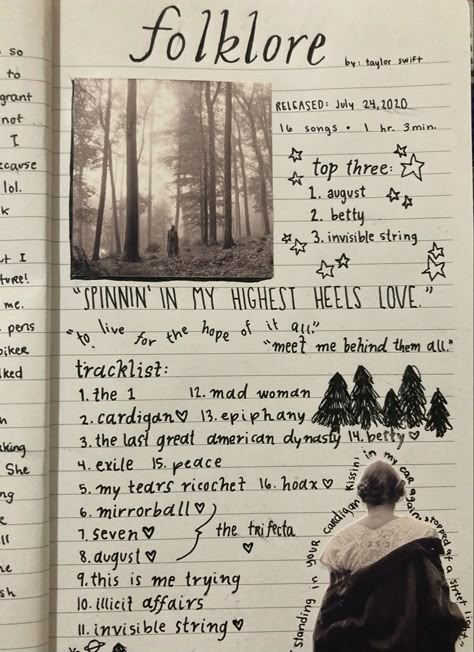 folklore
by: taylor swift
RELEASED: July 24, 2020
16 songs • 1 hr. 3 min.
top three:
1. august
2. betty
3. invisible string
"SPINNIN' IN MY HIGHEST HEELS LOVE."
"to live for the hope of it all."
"meet me behind them all."
tracklist:
1. the 1
2. cardigan♡
3. the last great american dynasty
4. exile
5. my tears ricochet
6. mirrorball♡
7. seven♡
8. august♡
9. this is me trying
10. illicit affairs
11. invisible string♡
12. mad woman
13. epiphany
14. betty♡
15. peace
16. hoax♡
the trifecta
♡
standing in your cardigan kissin' in my car again stopped at a street light"
so
to
grant
not
I
lol.
k
I
me.
pens
She